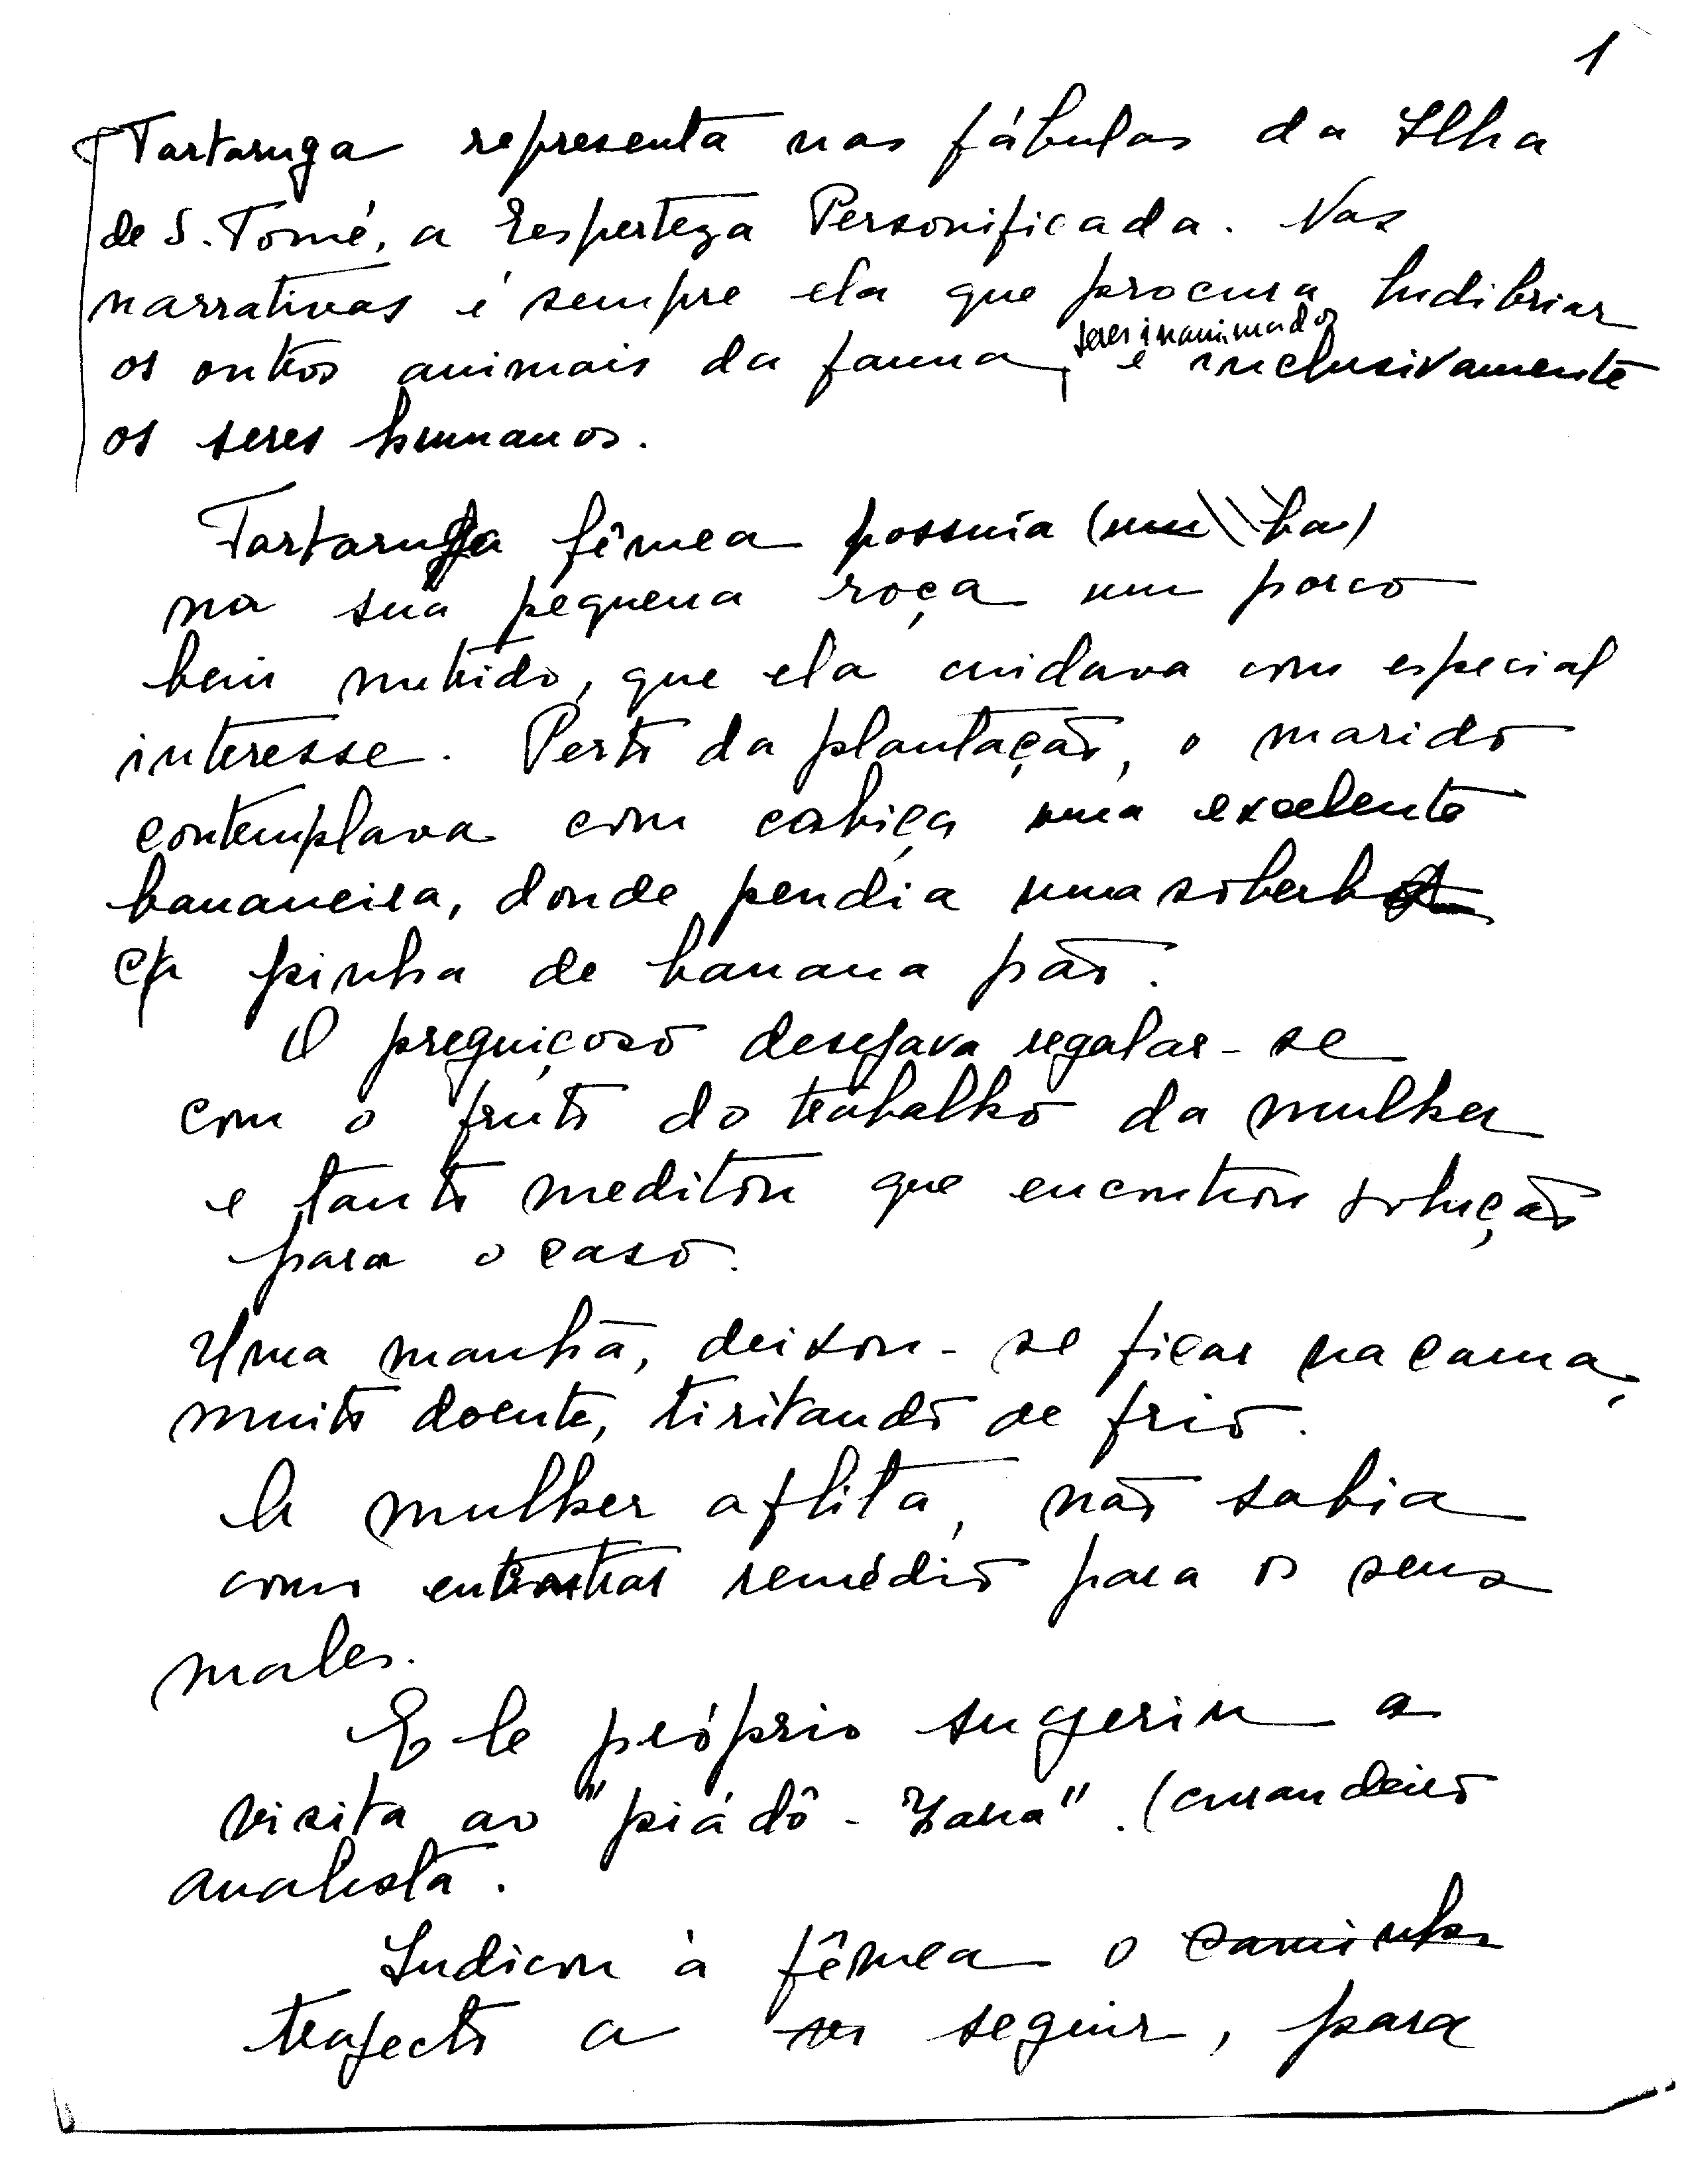 1
Tartaruga representa nas fábulas da Ilha
de S. Tomé, a Esperteza Personificada. Nas
narrativas é sempre ela que procura ludibriar
os outros animais da fauna, seres inanimados e inclusivamente
os seres humanos.
Tartaruga fêmea possuía (um
na sua pequena roça um porco
bem nutrido, que ela cuidava com especial
interesse. Perto da plantação, o marido
contemplava com cobiça uma excelente
bananeira, donde pendia uma soberba
pinha de banana pão.
O preguiçoso desejava regalar-se
com o fruto do trabalho da mulher
e tanto meditou que encontrou solução
para o caso.
Uma manhã, deixou-se ficar na cama,
muito doente, tiritando de frio.
A mulher aflita, não sabia
como remédio para os seus
males.
Ele próprio sugeriu a
visita ao "piádô-Zaua". (curandeiro
analista.
Indicou à fêmea o caminho
trajecto a seguir, para